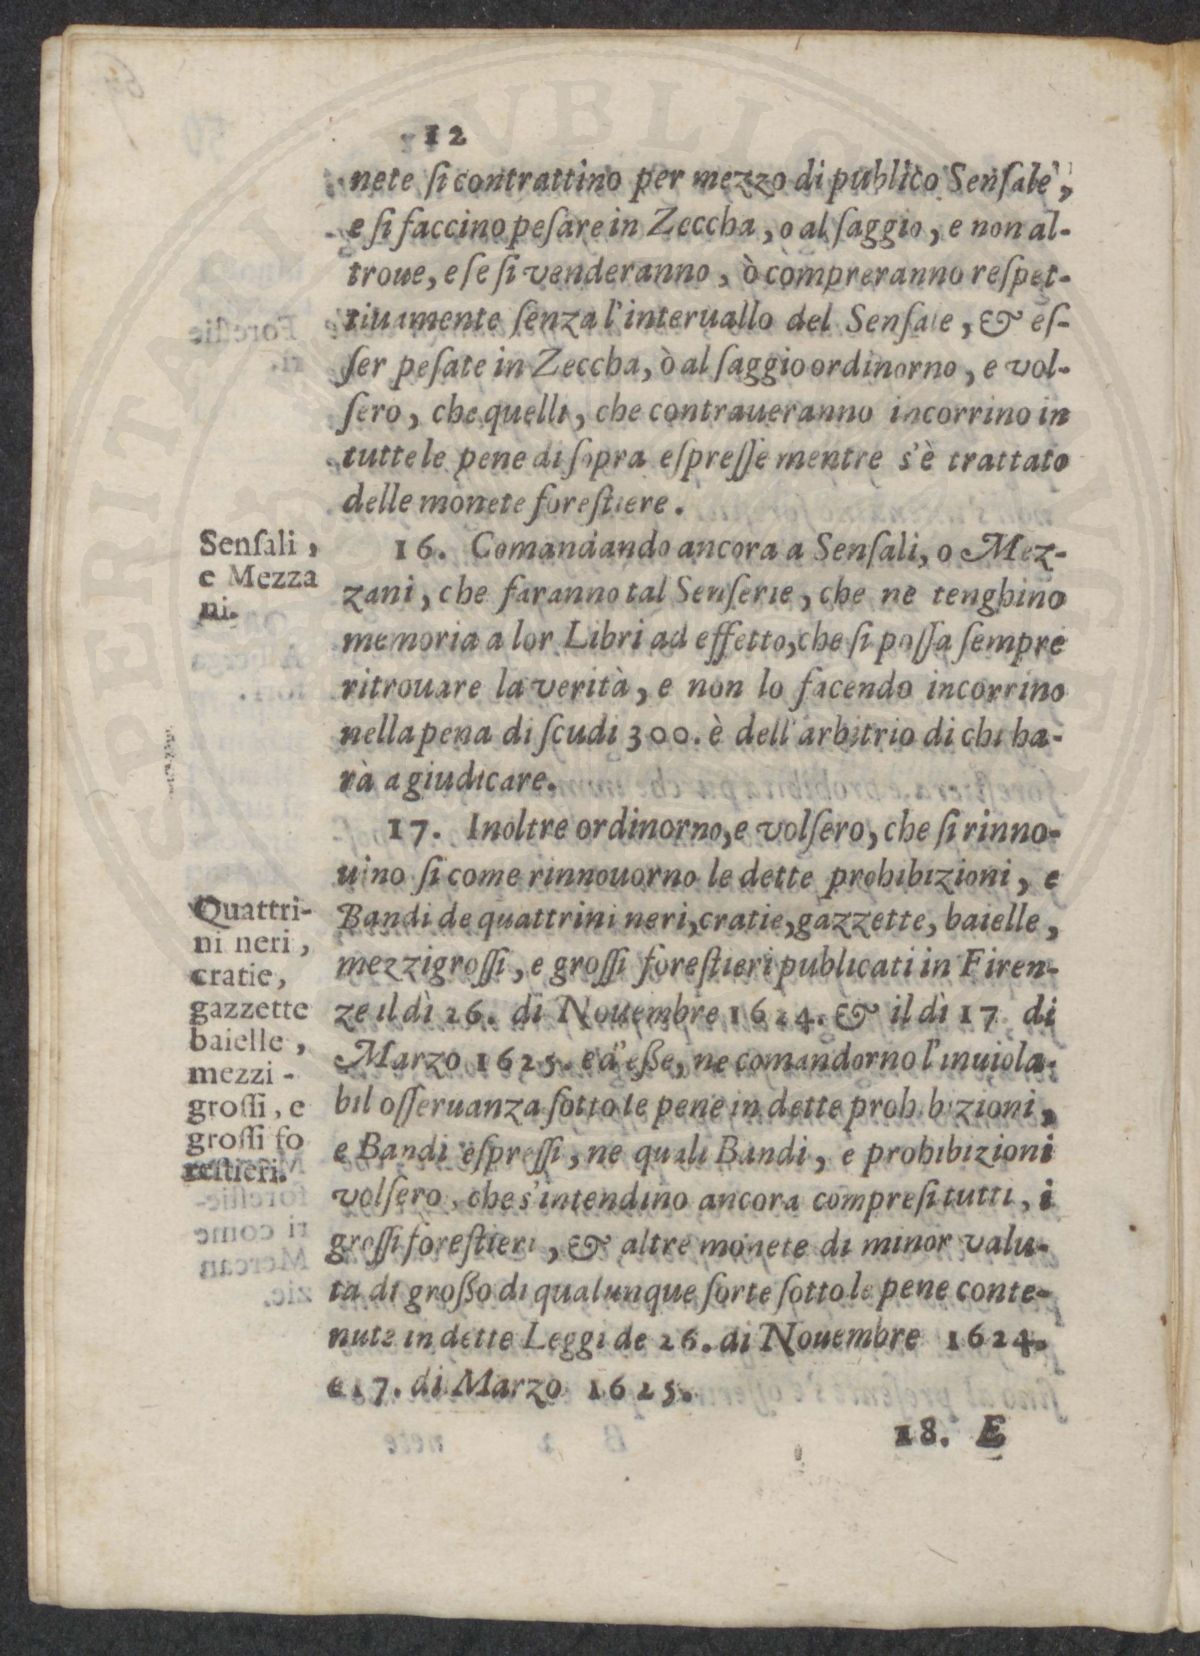 12
nete ſi contrattino per mezzo di publico Senſale,
e ſi faccino peſare in Zeccha, o al ſaggio, e non al-
troue, e ſe ſi venderanno, ò compreranno reſpet-
tiuamente ſenza l'interuallo del Senſale, & eſ-
ſer peſate in Zeccha, ò al ſaggio ordinorno, e vol-
ſero, che quelli, che contraueranno incorrino in
tutte le pene di ſopra eſpreſſe mentre s'è trattato
delle monete foreſtiere.
Senſali,
e Mezza
ni.
16. Comandando ancora a Senſali, o Mez-
zani, che faranno tal Senſerie, che ne tenghino
memoria a lor Libri ad effetto, che ſi poſſa ſempre
ritrouare la verità, e non lo facendo incorrino
nella pena di ſcudi 300. è dell'arbitrio di chi ha-
rà a giudicare.
17. Inoltre ordinorno, e volſero, che ſi rinno-
uino ſi come rinnouorno le dette prohibizioni, e
Quattri-
ni neri,
cratie,
gazzette
baielle,
mezzi-
groſſi, e
groſſi fo
reſtieri.
Bandi de quattrini neri, cratie, gazzette, baielle,
mezzigroſſi, e groſſi foreſtieri publicati in Firen-
ze il dì 26. di Nouembre 1624. & il dì 17 di
Marzo 1625. e d'eße, ne comandorno l'inuiola-
bil oſſeruanza ſotto le pene in dette prohibizioni,
e Bandi eſpreſſi, ne quali Bandi, e prohibizioni
volſero, che s'intendino ancora compreſi tutti, i
groſſi foreſtieri, & altre monete di minor valu-
ta di großo di qualunque ſorte ſotto le pene conte-
nute in dette Leggi de 26. di Nouembre 1624.
e 17. di Marzo 1625.
18. E